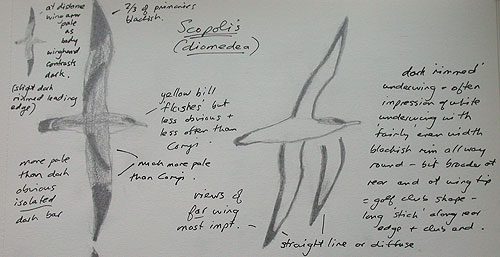 at distance
wing arm
pale
as
body
winghand
contrasts
dark.
(slight dark
rimmed leading
edge)
2/3 of primaries
blackish.
Scopoli's
(diomedea)
yellow bill
'flashes' but
less obvious +
less often than
Corys
more pale
than dark
obvious
isolated
dark bar
much more pale
than Corys.
views of
far wing
most impt.
straight line or diffuse
dark 'rimmed'
underwing - often
impression of white
underwing with
fairly even width
blackish rim all way
round - but broader at
rear and at wing tip
= golf club shape -
long 'stick' along rear
edge + club end.